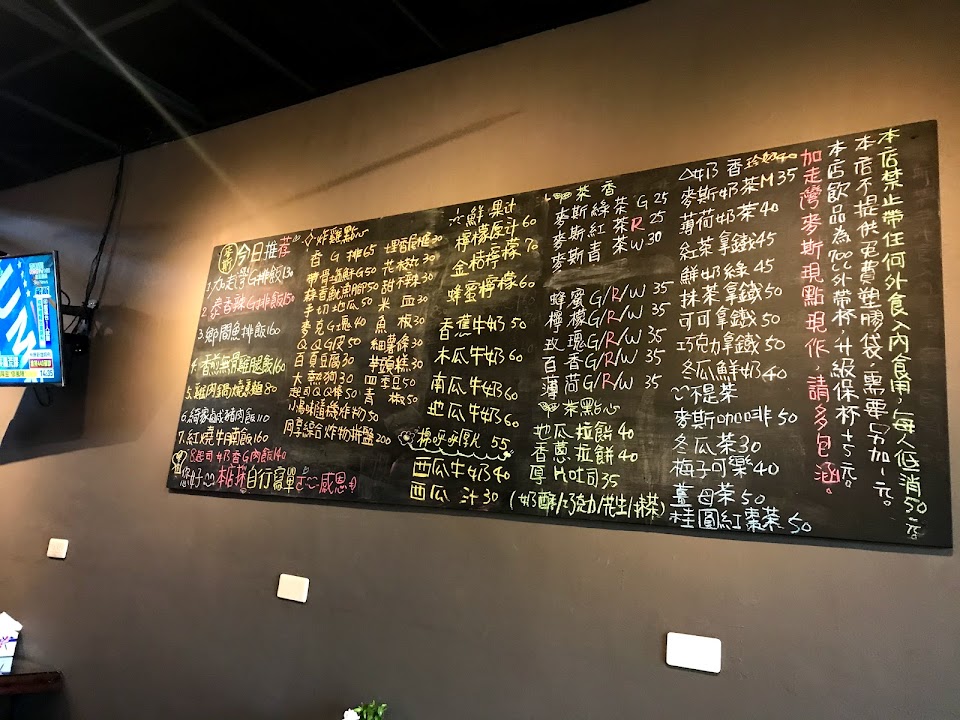 今日推荐
1.加走灣G排飯130
2.泰香辣G排飯150
3.鄉間魚排飯160
4.香煎無骨雞腿飯160
5.雞肉鍋燒意麵80
6.綺家鹹豬肉飯110
7.紅燒牛腩飯160
8起司奶香G肉飯140
本店採自行寫單 感恩
炸雞點心
香G排65
帶骨鹽酥G50
手切地瓜50
麥克G塊40
QQG皮50
百頁豆腐30
大熱狗30
起司QQ棒50
小湯味隨機炸物50
同享綜合炸物拼盤200
花枝丸30
甜不辣30
米血30
魚板30
細薯條30
芋頭糕30
四季豆50
青椒50
鮮果汁
檸檬原汁60
金桔檸檬70
蜂蜜檸檬60
香蕉牛奶50
木瓜牛奶60
南瓜牛奶60
地瓜牛奶60
55
西瓜牛奶40
西瓜汁30
茶香
麥斯綠茶G25
麥斯紅茶R25
麥斯青茶W30
蜂蜜G/R/W 35
檸檬G/R/W 35
玫瑰G/R/W 35
百香G/R/W 35
薄荷G/R/W 35
茶點心
地瓜拉餅40
香蔥拉餅40
厚片吐司35
(奶酥/巧克力/花生/抹茶)
奶香 珍奶40
麥斯奶茶M35
薄荷奶茶40
紅茶拿鐵45
鮮奶綠45
抹茶拿鐵50
可可拿鐵50
巧克力拿鐵50
冬瓜鮮奶40
不是茶
麥斯咖啡50
冬瓜茶30
梅子可樂40
薑母茶50
桂圓紅棗茶50
本店禁止帶任何外食入內食用,每人低消50元。
本店不提供免費塑膠袋,需要另加一元。
本店飲品為700cc外帶杯,升級保杯+5元。
加走灣麥斯現點現作,請多包涵。